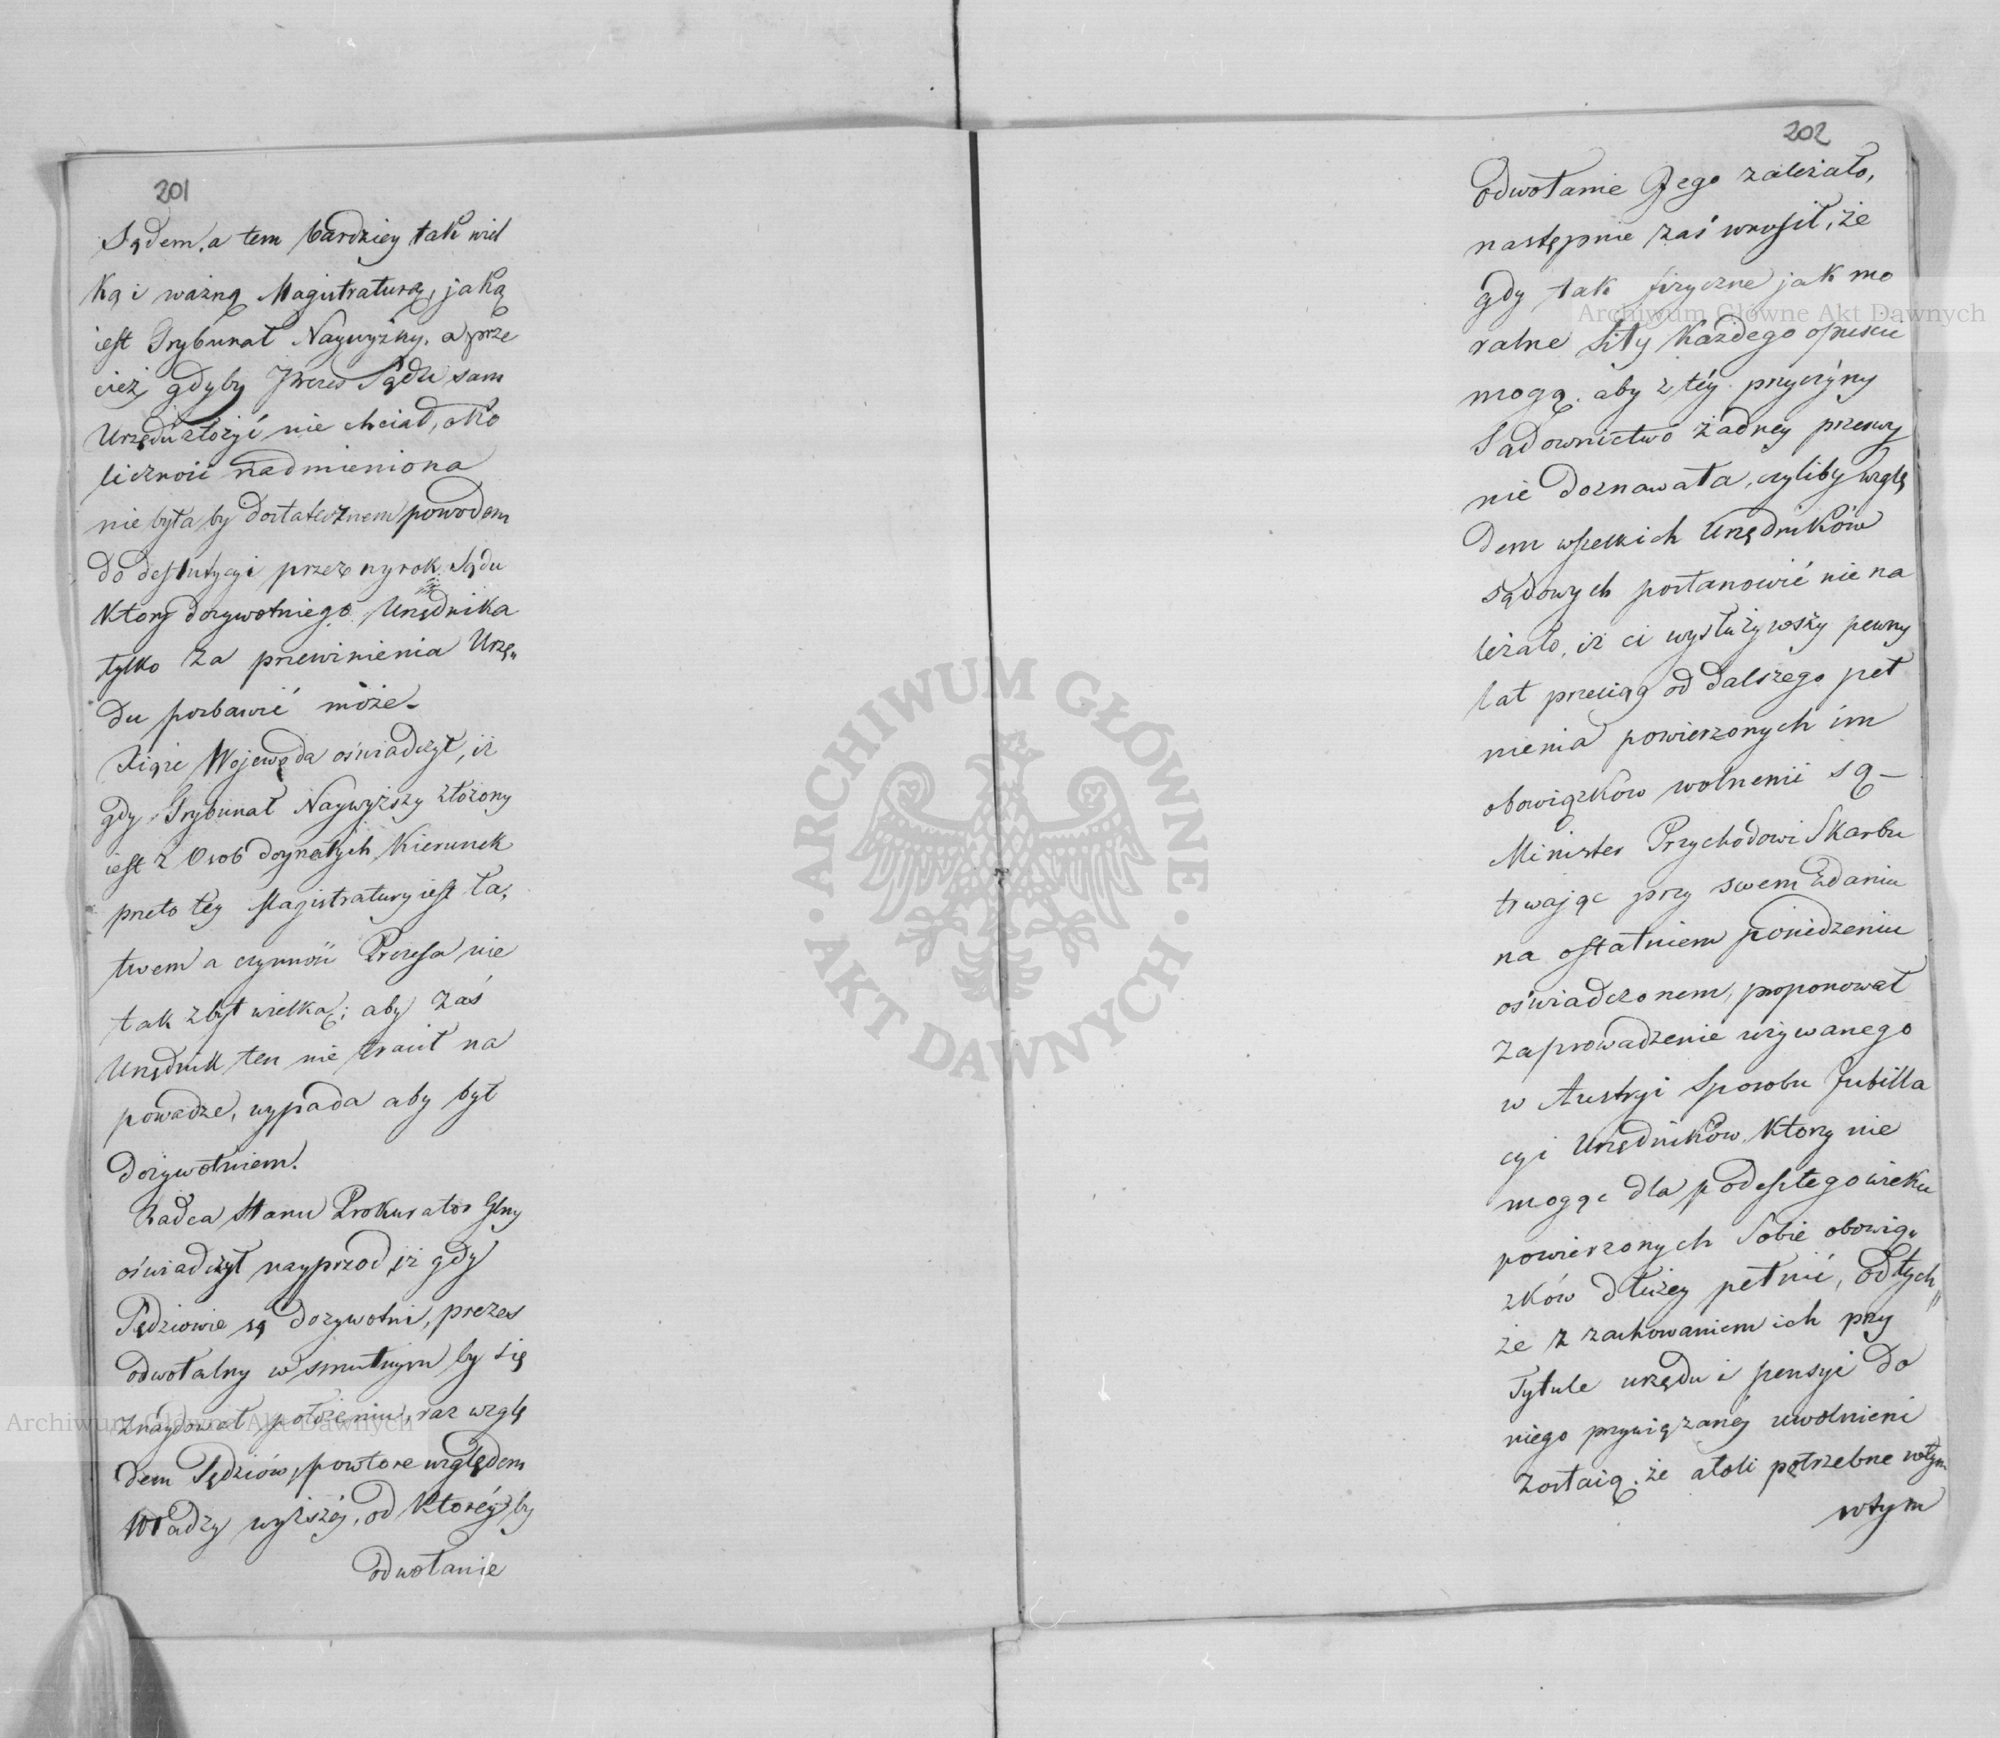 201
Sądem, a tem bardziey tak wiel
ką i ważną Magistraturą, jaką
iest Trybunał Naywyżny, a prze
cież gdyby Prezes Sądu sam
Urzędu złożyć nie chciał, oko
liczność nadmieniona
nie byłaby dostatecznem powodem
do destytucyi przez wyrok Sądu
ktory dożywotniego Urzędnika
tylko za przewinienia Urzę„
du pozbawić może.
Xiąże Wojewoda oświadczył, iż
gdy Trybunał Naywyższy złożony
iest z Osob doyrzałych, Kierunek
przeto tey Magistratury iest ła,
twem a czynność Prezesa nie
tak zbyt wielką; aby zaś
Urzędnik ten nie tracił na
powadze, wypada aby był
dożywotniem.
Radca Stanu Prokurator Glny
oświadczył nayprzod, iż gdy
Sędziowie są dożywotni, prezes
odwołalny w smutnym by się
znaydował położeniu, raz wzglę
dem Sędziów, powtore względem
Władzy wyższéy, od któréy by
odwołanie
202
odwołanie Jego zależało,
następnie zaś wnosił, że
gdy tak fizyczne jak mo
ralne siły każdego opuscić
mogą, aby z téy przyczyny
Sądownictwo żadney przerwy
nie doznawała, czyliby wzglę
dem wszelkich Urzędników
sądowych postanowić nie na
leżało, iż ci wysłużywszy pewny
lat przeciąg od dalszego peł
nienia powierzonych im
obowiązkow wolnemi są –
Minister Przychodow i Skarbu
trwając przy swem zdaniu
na ostatniem posiedzeniu
oświadczonem, proponował
zaprowadzenie używanego
w Austryi Sposobu Jubilla
cyi Urzędników, ktorzy nie
mogąc dla podeszłego wieku
powierzonych Sobie obowią„
zków dłużey pełnić, od tych„
że z zachowaniem ich przy
Tytule urzędu i pensyi do
niego przywiązanéy uwolnieni
zostaią, że atoli potrzebne w tym
w tym
Archiwum Główne Akt Dawnych
Archiwum Główne Akt Dawnych
ARCHIWUM GŁÓWNE · AKT DAWNYCH ·